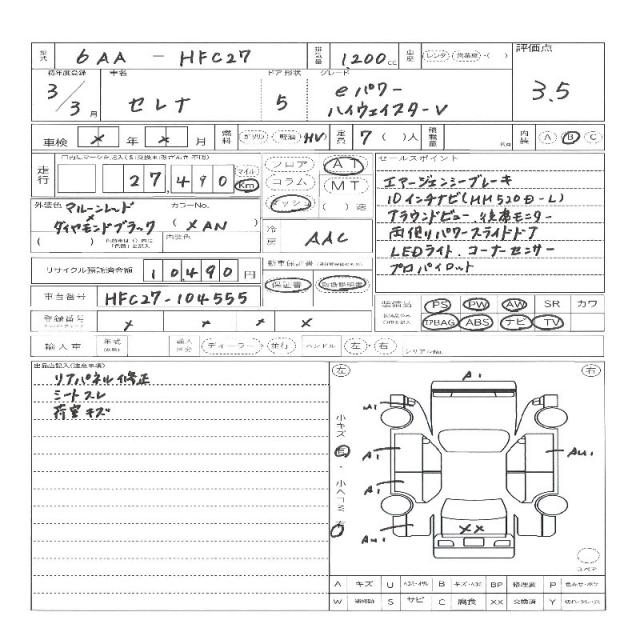 型式 6AA - HFC27 排気量 1,200 cc レンタ 評価点
初年度登録 車名 ドア形状 グレード
3/3月 セレナ 5 eパワー 3.5
ハイウェイスターV
車検 × 年 × 月 燃料 ガソリン 軽油 HV 定員 7 ( )人 積載量 内装 A B C
走行 27,490 マイル Km フロア AT セールスポイント
コラム MT エマージェンシーブレーキ
外装色 マルーンレッド カラーNo. メッシュ ( )速 10インチナビ(MM520D-L)
× ダイヤモンドブラック (XAN) アラウンドビュー.後席モニター
内装色 冷房 AAC 両側パワースライドドア
LEDライト.コーナーセンサー
リサイクル預託済金額 10,490 円 新車保証書 プロパイロット
車台番号 HFC27-104555 保証書 取扱説明書 装備品 PS PW AW SR カワ
登録番号 × × × × AIRBAG ABS ナビ TV
輸入車 年式 輸入区分 ディーラー・並行 ハンドル 左・右 シリアルNo.
出品店記入(注意事項)
リアパネル修正
シートスレ
荷室キズ
左 右
A1
A1
小キズ 有・小ヘコミ 有
A1 AU1
A1
XX
AU1
スペア
A キズ U B キズ・ヘコミ BP P
W S サビ C 腐食 XX 交換済 Y